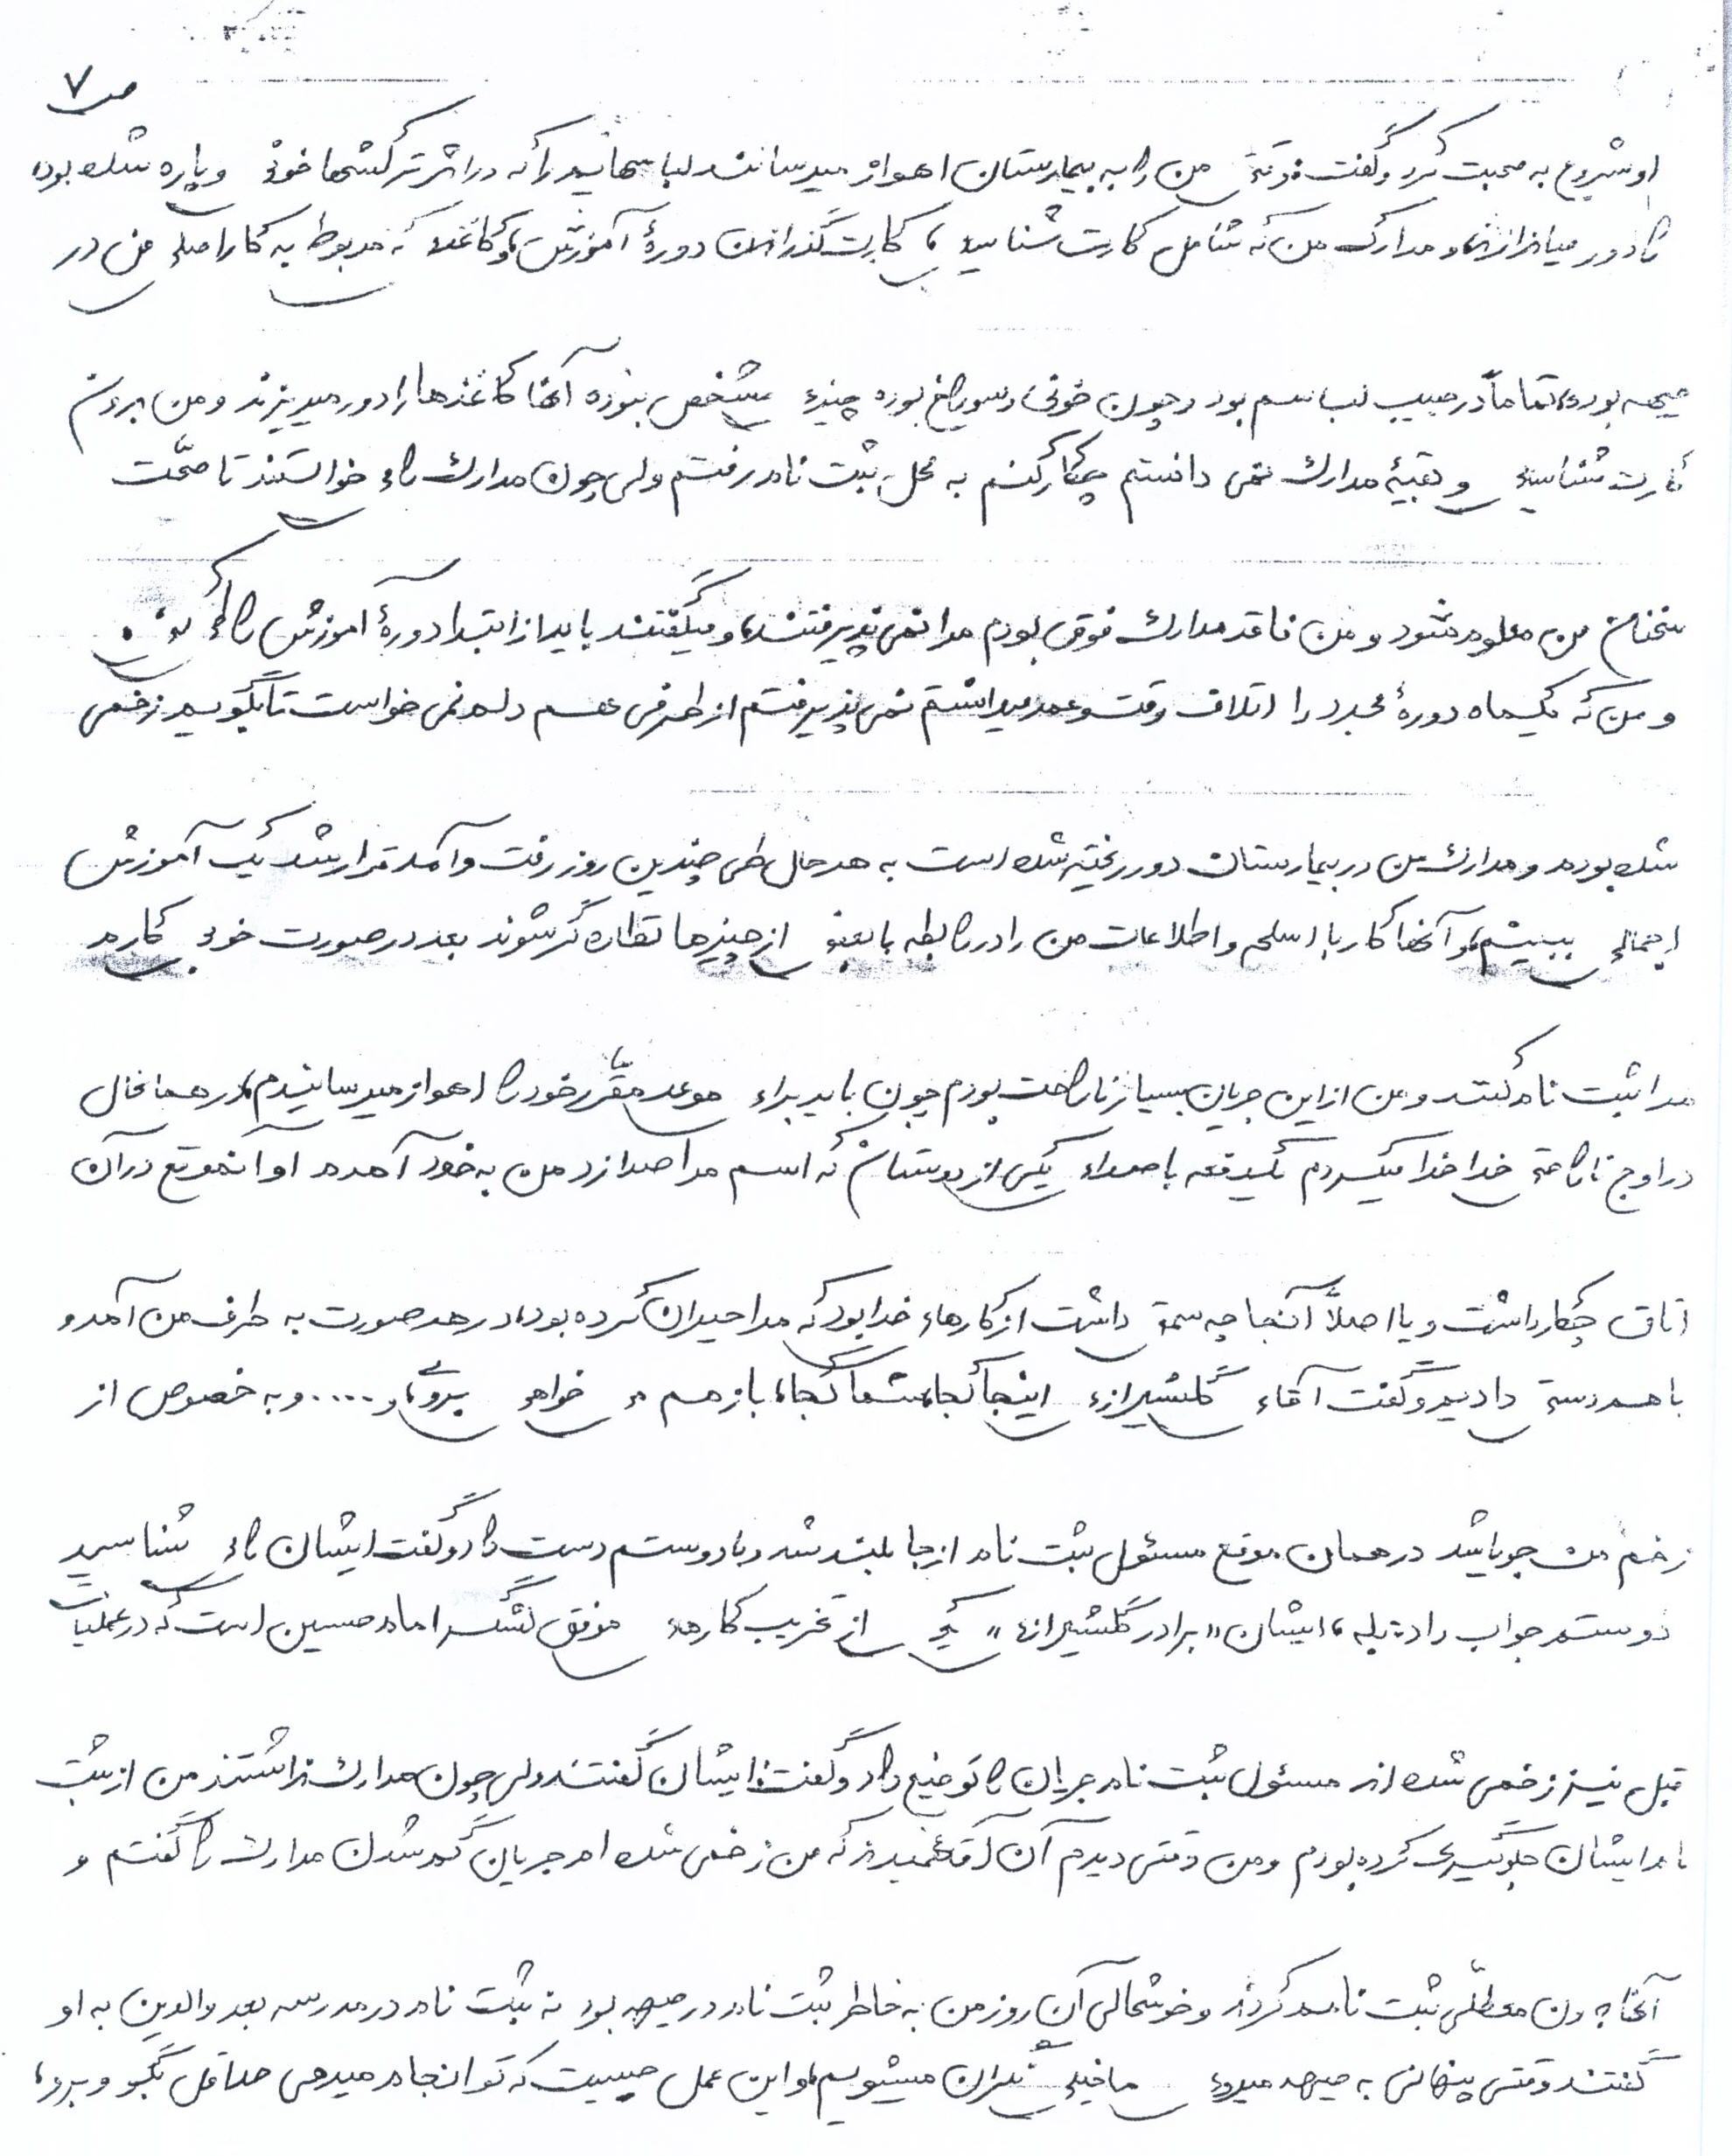 ص ۷
او شروع به صحبت کرد و گفت: وقتی من را به بیمارستان اهواز میرسانند لباسهایم را که در اثر ترکشها خونی و پاره شده بوده
را دور میاندازند، و مدارک من که شامل کارت شناسایی، کارت گذراندن دورهٔ آموزش، و کاغذی که مربوط به کارآمدی من در
جبهه بوده، تماماً در جیب لباسم بود و چون خونی و سوراخ بوده چیزی مشخص نبوده آنها کاغذها را دور میریزند و من بدون
کارت شناسایی و بقیهٔ مدارک نمی دانستم چکار کنم به محل ثبت نام رفتم ولی چون مدارک را می خواستند تا صحّت
سخنان من معلوم شود و من فاقد مدارک فوق بودم مرا نمی پذیرفتند، و میگفتند باید از ابتدا دورهٔ آموزش را
و من که یکماه دورهٔ مجدد را اتلاف وقت و عمر میدانستم نمی پذیرفتم از طرفی هم دلم نمی خواست تا بگویم زخمی
شده بودم و مدارک من در بیمارستان دور ریخته شده است به هر حال طی چندین روز رفت و آمد قرار شد یک آموزش
اجمالی ببینیم، و آنها کار با اسلحه و اطلاعات من را در رابطه با بعضی از چیزها نظاره گر شوند بعد در صورت خوبی کارم
مرا ثبت نام کنند و من از این جریان بسیار ناراحت بودم چون باید برای موعد مقرّر خود را اهواز میرسانیدم، در همانحال
در اوج ناراحتی خدا خدا میکردم یکدفعه با صدای یکی از دوستان که اسم مرا صدا زد من به خود آمدم او آنموقع در آن
اتاق چکار داشت و یا اصلاً آنجا چه سمتی داشت از کارهای خدا بود که مرا حیران کرده بود، در هر صورت به طرف من آمد و
با هم دستی دادیم و گفت آقای گلشیرازی اینجا کجا، شما کجا، باز هم می خواهی بروی، و .... و به خصوص از
زخم من جویا شد در همان موقع مسئول ثبت نام از جا بلند شد و با دوستم دست داد و گفت ایشان را می شناسید
دوستم جواب داد: بله، ایشان «برادر گلشیرازی» یکی از تخریب کارهای موفق لشگر امام حسین است که در عملیات
قبل نیز زخمی شده اند مسئول ثبت نام جریان را توضیح داد و گفت: ایشان گفتند ولی چون مدارک نداشتند من از ثبت
نام ایشان جلوگیری کرده بودم و من وقتی دیدم آن آقا فهمید که من زخمی شده ام جریان گم شدن مدارک را گفتم و
آنها بدون معطلّی ثبت نامم کردند و خوشحالی آن روز من به خاطر ثبت نام در جبهه بود نه ثبت نام در مدرسه بعد والدین به او
گفتند وقتی پنهانی به جبهه میروی ما خیلی نگران میشویم، و این عمل چیست که تو انجام میدهی حداقل بگو و برو،